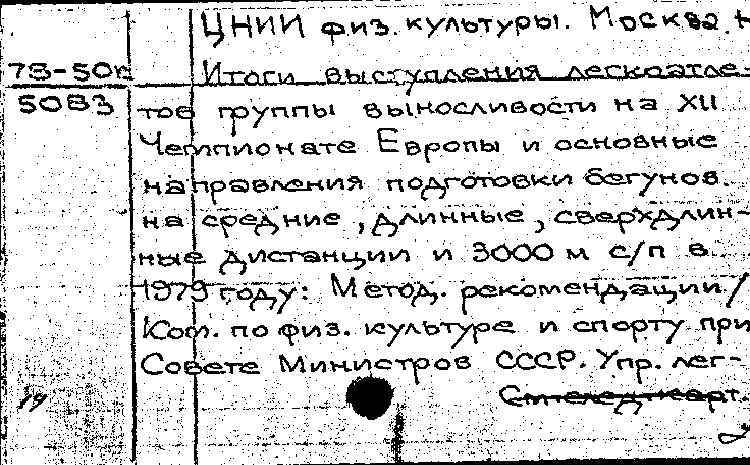 ЦНИИ физ. культуры. Москва.
78-50п Итоги выступления легкоатле-
5083 тов группы выносливости на XII
Чемпионате Европы и основные
направления подготовки бегунов
на средние, длинные, сверхдлин-
ные дистанции и 3000 м с/п в
1979 году: Метод. рекомендации/
Ком. по физ. культуре и спорту при
Совете Министров СССР. Упр. лег-
19 См. след. карт.